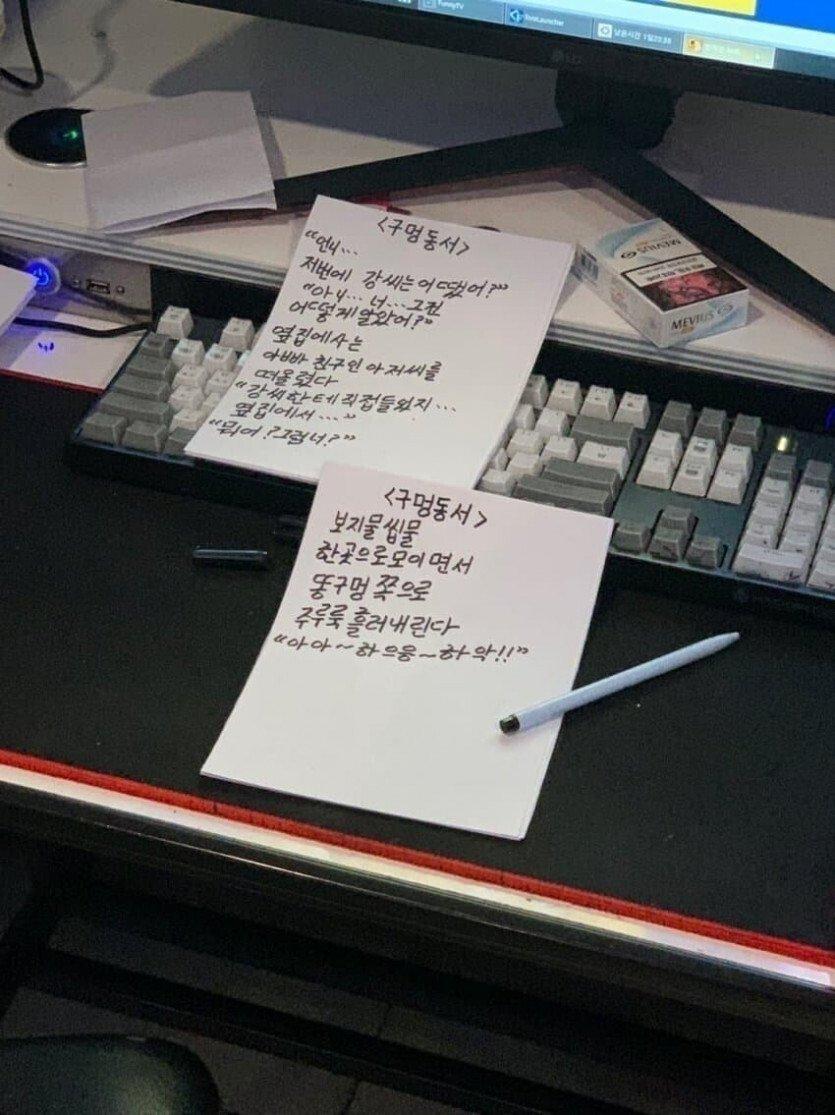 FunnyTV
LG
<구멍동서>
“언니…
저번에 강씨는어땠어?”
“아니… 너…그건
어떻게알았어?”
옆집에사는
아빠 친구인아저씨를
떠올렸다
“강씨한테직접들었지…
옆집에서…”
“뭐어?그럼너?”
MEVIUS
MEVIUS
<구멍동서>
보지물씹물
한곳으로모이면서
똥구멍 쪽으로
주루룩흘러내린다
“아아~하으응~하악!!”